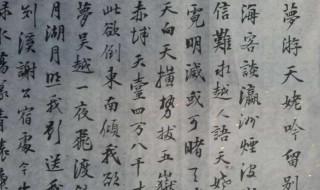 夢游天姥吟留别
海客談瀛洲煙波
信難求越人語天姥
霓明滅或可睹
天向天橫勢拔五嶽
赤城天臺四万八千
此欲倒東南傾我欲
夢吴越一夜飛渡
月湖月照我影送我
剡溪謝公宿處今
渌水蕩漾清猿